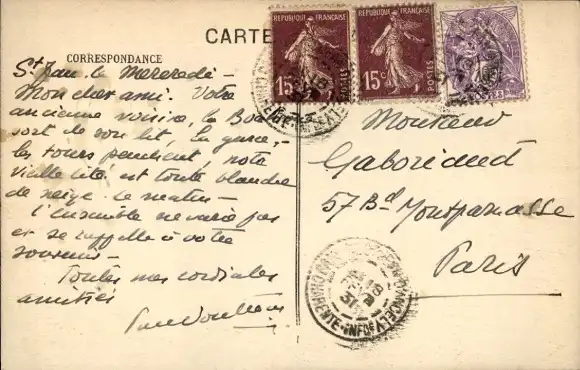 CARTE
CORRESPONDANCE
REPUBLIQUE FRANÇAISE
15c
POSTES
REPUBLIQUE FRANÇAISE
15c
POSTES
St Jean, le Mercredi –
Mon cher ami. Votre
ancienne voisine, la Bou
sort de son lit, la garce,
les tours penchent, notre
vieille cité est toute blanche
de neige. Ce matin –
l'ensemble ne varie pas
et se rappelle à votre
souvenir –
Toutes mes cordiales
amitiés
Monsieur
Gaboriaud
57 Bd Montparnasse
Paris